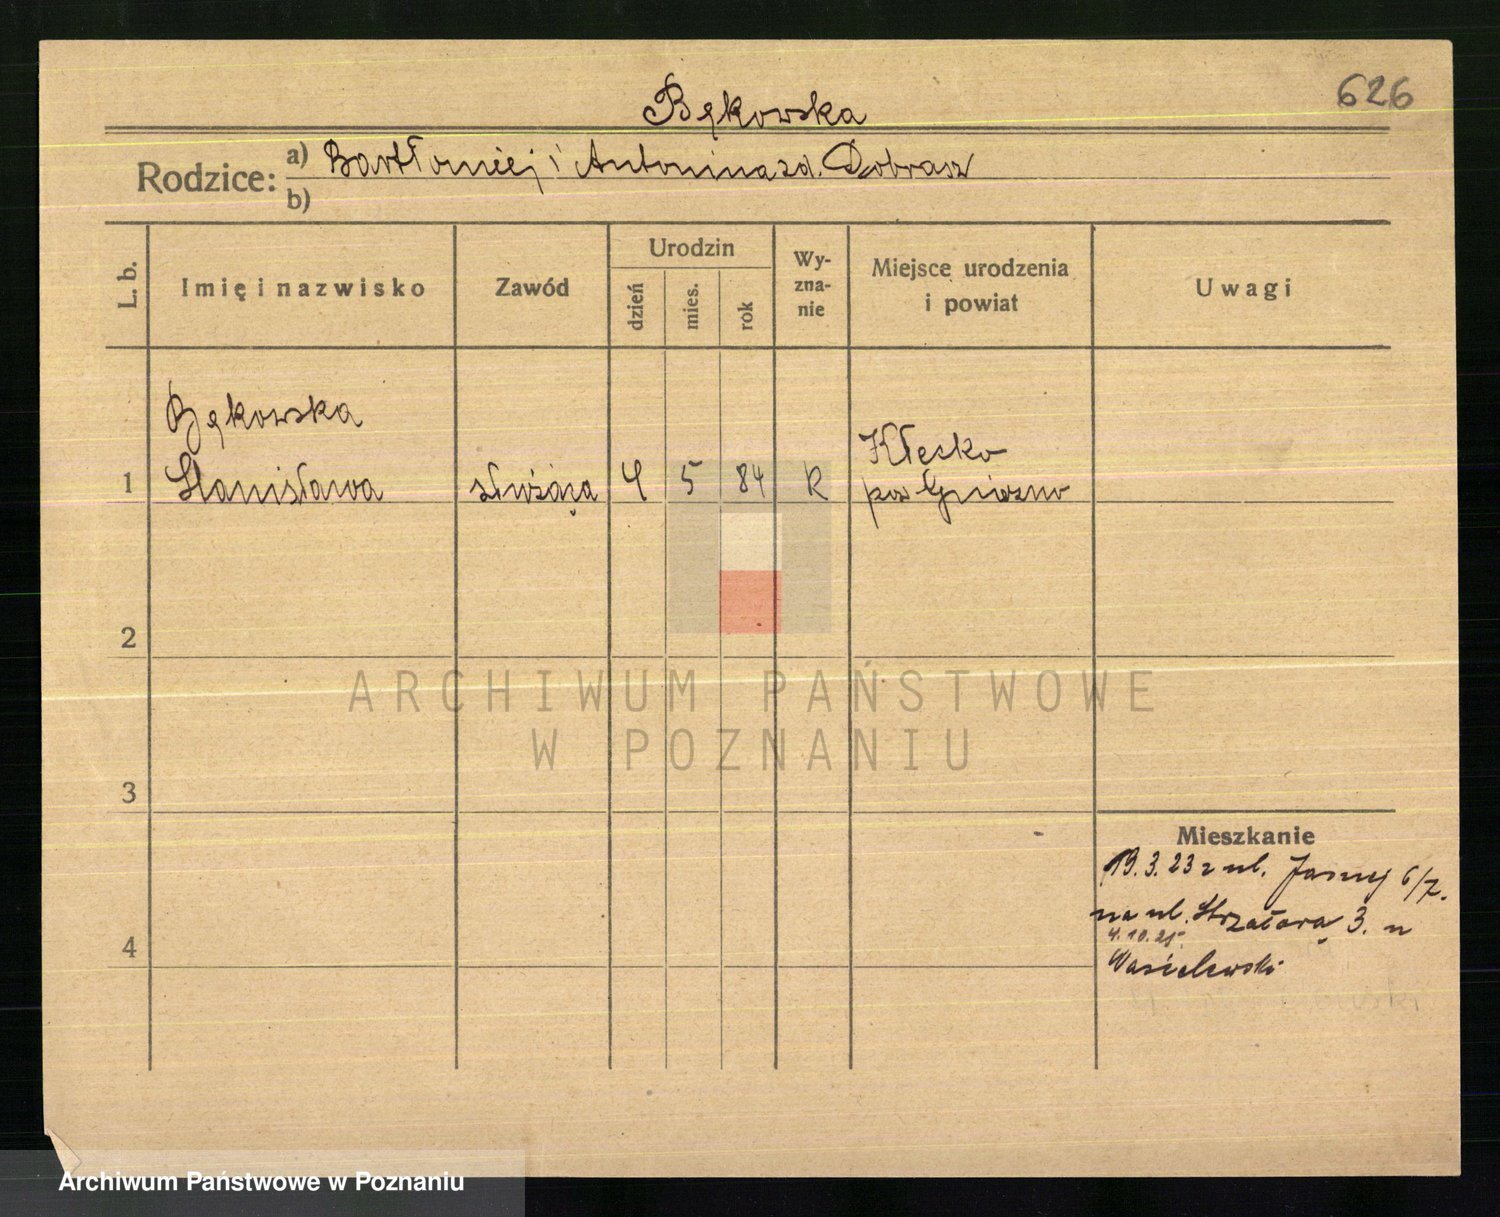 626
Bękowska
Rodzice: a) Bartłomiej i Antonina zd. Dobrasz
b)
L. b.
Imię i nazwisko
Zawód
Urodzin
dzień
mies.
rok
Wy-
zna-
nie
Miejsce urodzenia
i powiat
Uwagi
Bękowska
1 Stanisława służąca 4 5 84 R Kłecko
pow Gniezno
2
3
4
Mieszkanie
19.3.23 z ul. Jasnej 6/7.
na ul. Strzałowa 3. u
4.10.25.
Wasielewski
ARCHIWUM PAŃSTWOWE
W POZNANIU
Archiwum Państwowe w Poznaniu